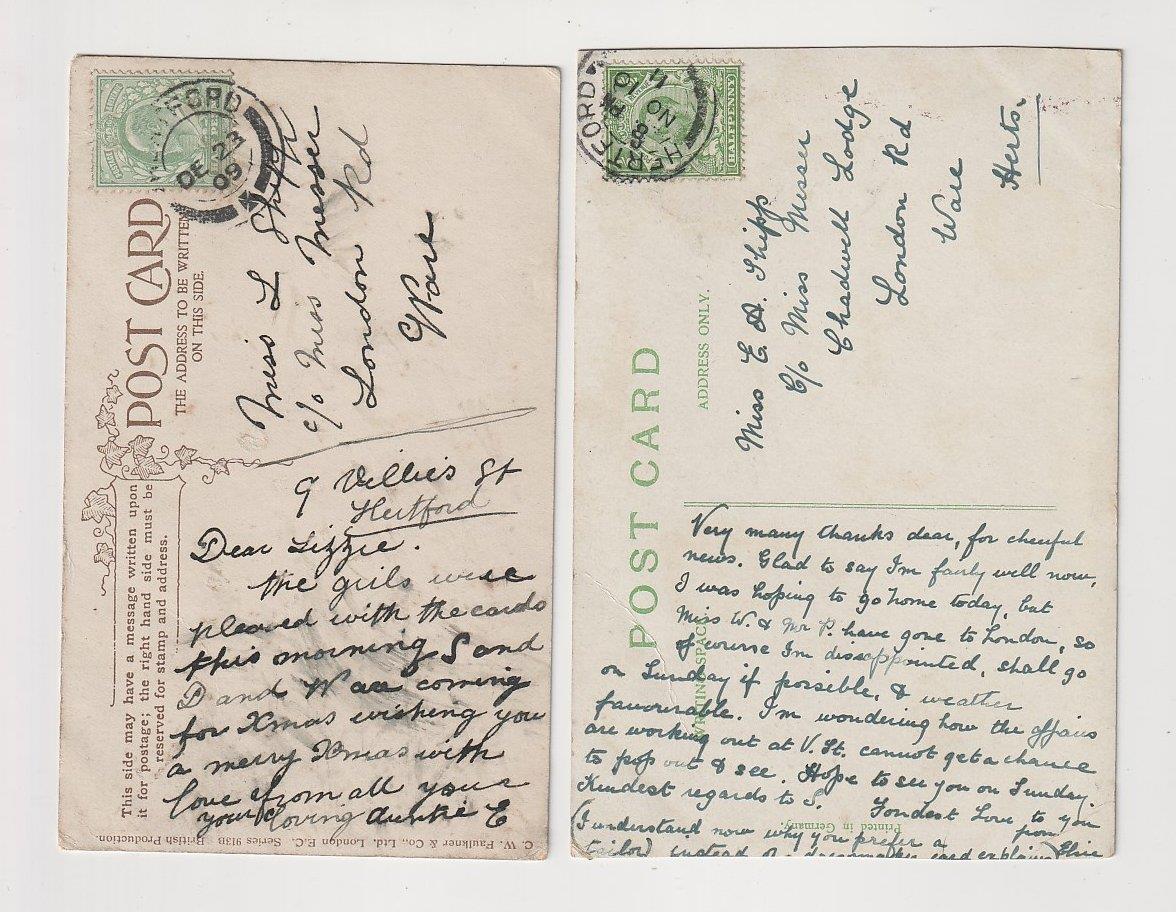 POST CARD
THE ADDRESS TO BE WRITTEN
ON THIS SIDE.
This side may have a message written upon
it for postage; the right hand side must be
reserved for stamp and address.
HERTFORD
DE 23
09
Miss L Shipp
c/o Miss Messer
London Rd
Ware
9 Villiers St
Hertford
Dear Lizzie.
the girls were
pleased with the cards
this morning S and
D and W are coming
for Xmas wishing you
a merry Xmas with
love from all your
your loving Auntie E
C. W. Faulkner & Co., Ltd. London E.C. Series 913B British Production.
POST CARD
ADDRESS ONLY.
WRITING SPACE
HERTFORD
NO 8
HALFPENNY
Miss E. A. Shipp
C/o Miss Messer
Chadwell Lodge
London Rd
Ware
Herts.
Very many thanks dear, for cheerful
news. Glad to say I'm fairly well now,
I was hoping to go home today, but
Miss W. & Mr P. have gone to London, so
of course I'm dissappointed, shall go
on Sunday if possible, & weather
favourable. I'm wondering how the affairs
are working out at V. St. cannot get a chance
to pop out & see. Hope to see you on Sunday.
Kindest regards to S. Fondest Love to you
from Elsie
(I understand now why you prefer a
tailor) instead of a dressmaker
Printed in Germany.